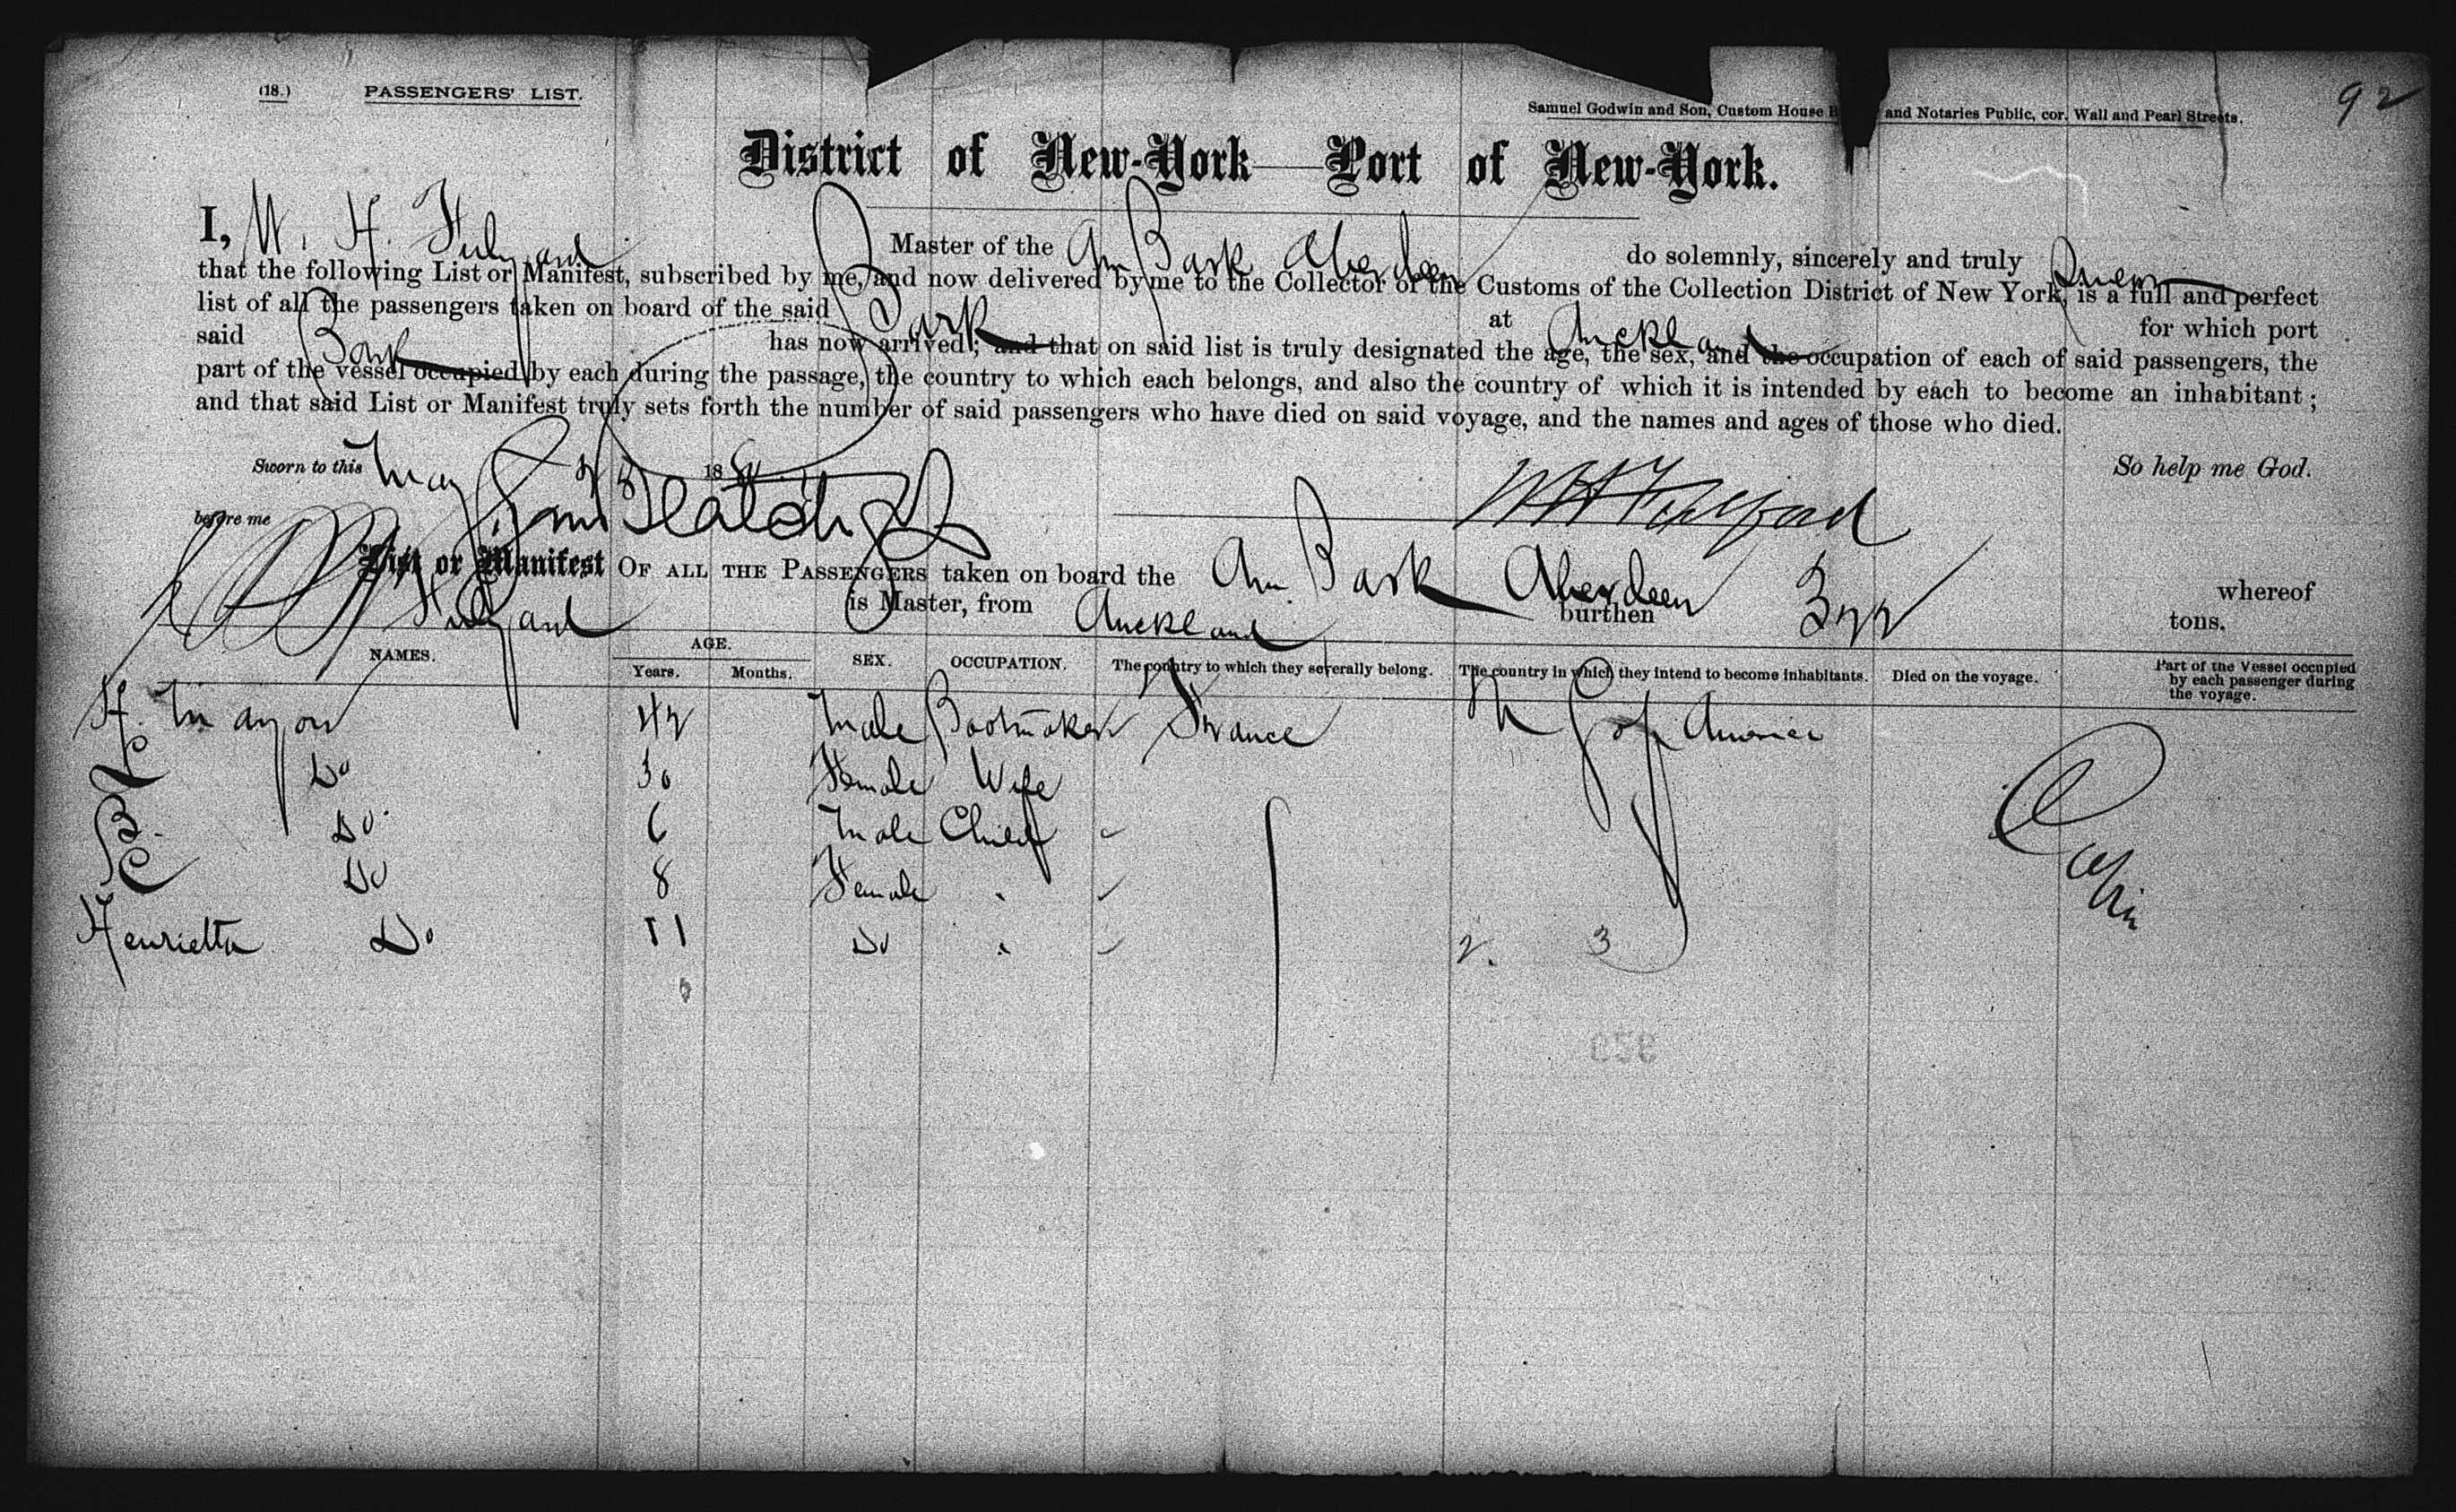 (18.) PASSENGERS' LIST.
92
Samuel Godwin and Son, Custom House and Notaries Public, cor. Wall and Pearl Streets.
District of New-York—Port of New-York.
I, W. H. Master of the Am Bark Aberdeen do solemnly, sincerely and truly Swear
that the following List or Manifest, subscribed by me, and now delivered by me to the Collector of the Customs of the Collection District of New York, is a full and perfect
list of all the passengers taken on board of the said Bark at Auckland for which port
said Bark has now arrived; and that on said list is truly designated the age, the sex, and the occupation of each of said passengers, the
part of the vessel occupied by each during the passage, the country to which each belongs, and also the country of which it is intended by each to become an inhabitant;
and that said List or Manifest truly sets forth the number of said passengers who have died on said voyage, and the names and ages of those who died.
Sworn to this May 188 So help me God.
before me
List or Manifest OF ALL THE PASSENGERS taken on board the Am. Bark Aberdeen whereof
is Master, from Auckland burthen tons.
NAMES. AGE. Years. Months. SEX. OCCUPATION. The country to which they severally belong. The country in which they intend to become inhabitants. Died on the voyage. Part of the Vessel occupied by each passenger during the voyage.
H. Mayon 42 Male Bootmaker France U S of America Cabin
L Do 30 Female Wife
B. Do. 6 Male Child
C Do 8 Female
Henrietta Do 11 Do
2. 3